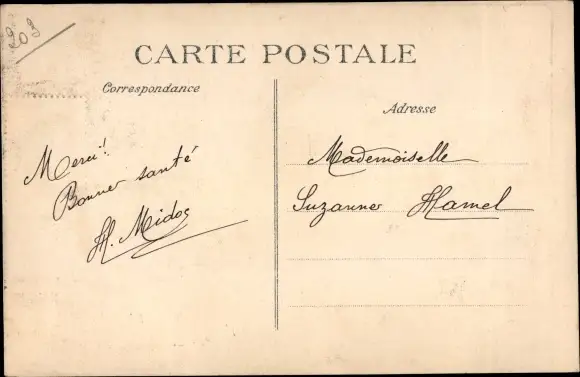 203
CARTE POSTALE
Correspondance
Merci!
Bonne santé
H. Midos
Adresse
Mademoiselle
Suzanne Hamel